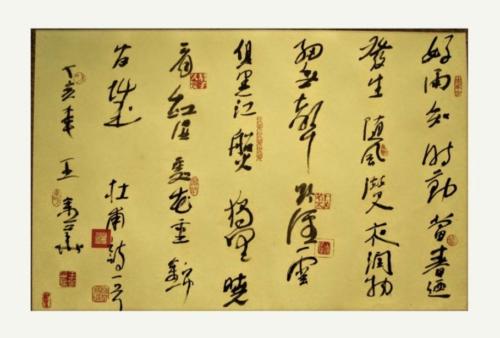 好雨知时節當春迺
發生随風潛入夜润物
細無聲野徑雲
俱黑江船火獨明曉
看紅濕處花重錦
官城杜甫詩一首
丁亥春王